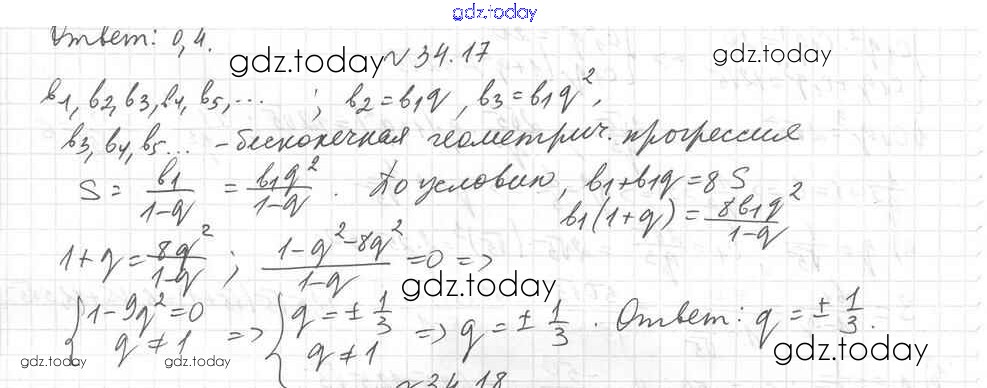 gdz.today
Ответ: 0,4.
gdz.today
№34.17
gdz.today
b1, b2, b3, b4, b5, ... ; b2 = b1q, b3 = b1q²,
b3, b4, b5... - бесконечная геометрич. прогрессия
S = b1/(1-q) = b1q²/(1-q). По условию, b1+b1q = 8S
b1(1+q) = 8b1q²/(1-q)
1+q = 8q²/(1-q) ; (1-q²-8q²)/(1-q) = 0 =>
gdz.today
{1-9q²=0 q≠1 => {q=±1/3 q≠1 => q=±1/3. Ответ: q=±1/3.
gdz.today
gdz.today
№34.18